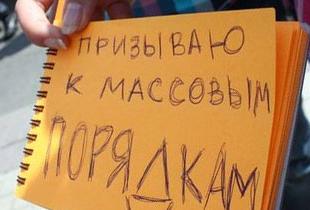 ПРИЗЫВАЮ
К МАССОВЫМ
ПОРЯДКАМ